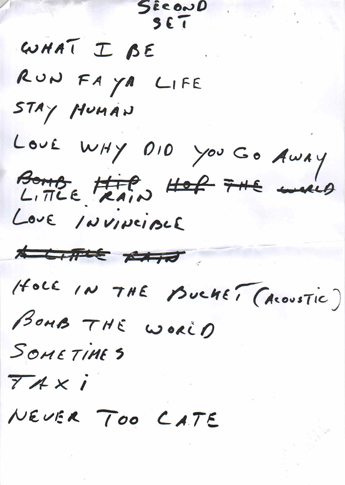 SECOND
SET
WHAT I BE
RUN FA YA LIFE
STAY HUMAN
LOVE WHY DID YOU GO AWAY
BOMB HIP HOP THE WORLD
LITTLE RAIN
LOVE INVINCIBLE
A LITTLE RAIN
HOLE IN THE BUCKET (ACOUSTIC)
BOMB THE WORLD
SOMETIMES
TAXI
NEVER TOO LATE